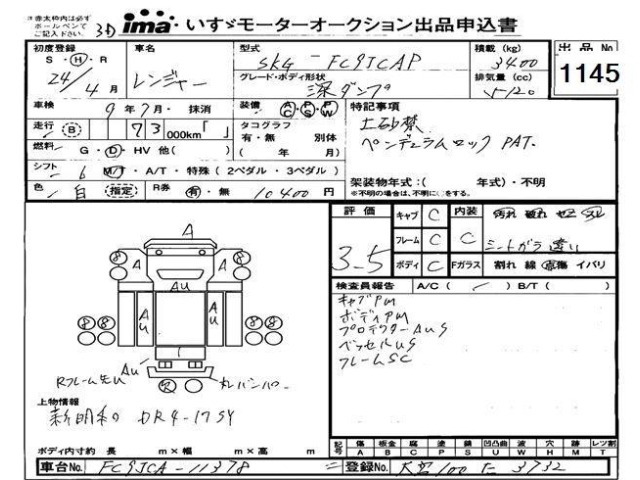 ※赤太枠内は必ず
ボールペンで
ご記入下さい。
3D ima いすゞモーターオークション出品申込書
初度登録 S・H・R 24/4月
車名 レンジャー
型式 SKG-FC9JCAP
積載(kg) 3400
出品No 1145
グレード・ボディ形状 深ダンプ
排気量(cc) 5120
車検 9年7月・抹消
装備 AC PS PW
特記事項
土砂禁
ペンデュラムロック PAT.
走行 B 73 000km「 」
タコグラフ 有・無 別体 ( 年 月)
燃料 G・D・HV 他( )
シフト 6 M/T・A/T・特殊(2ペダル・3ペダル)
架装物年式:( 年式)・不明
※不明の場合は、不明に○をする。
色 白 (指定) R券 有・無 10400円
評価 3.5
キャブ C 内装 C 汚れ 破れ コゲ スレ
フレーム C シートガラ違い
ボディ C Fガラス 割れ 線 点傷 イバリ
検査員報告 A/C( ) B/T( )
キャブPM
ボディPM
プロテクターAUS
ベッセルUS
フレームSC
A
8 A A 8
AU
AU AU
88 88
AU
Rフレーム先U 丸バンパー
上物情報
新明和 DR4-17SY
ボディ内寸約 長 m×幅 m×高 m
記号 傷 板金 腐 塗 錆 凹凸曲 波 穴 跡 レンズ割
A B C P S U W H M T
車台No. FC9JCA-11378
登録No. 大宮100 に 3732